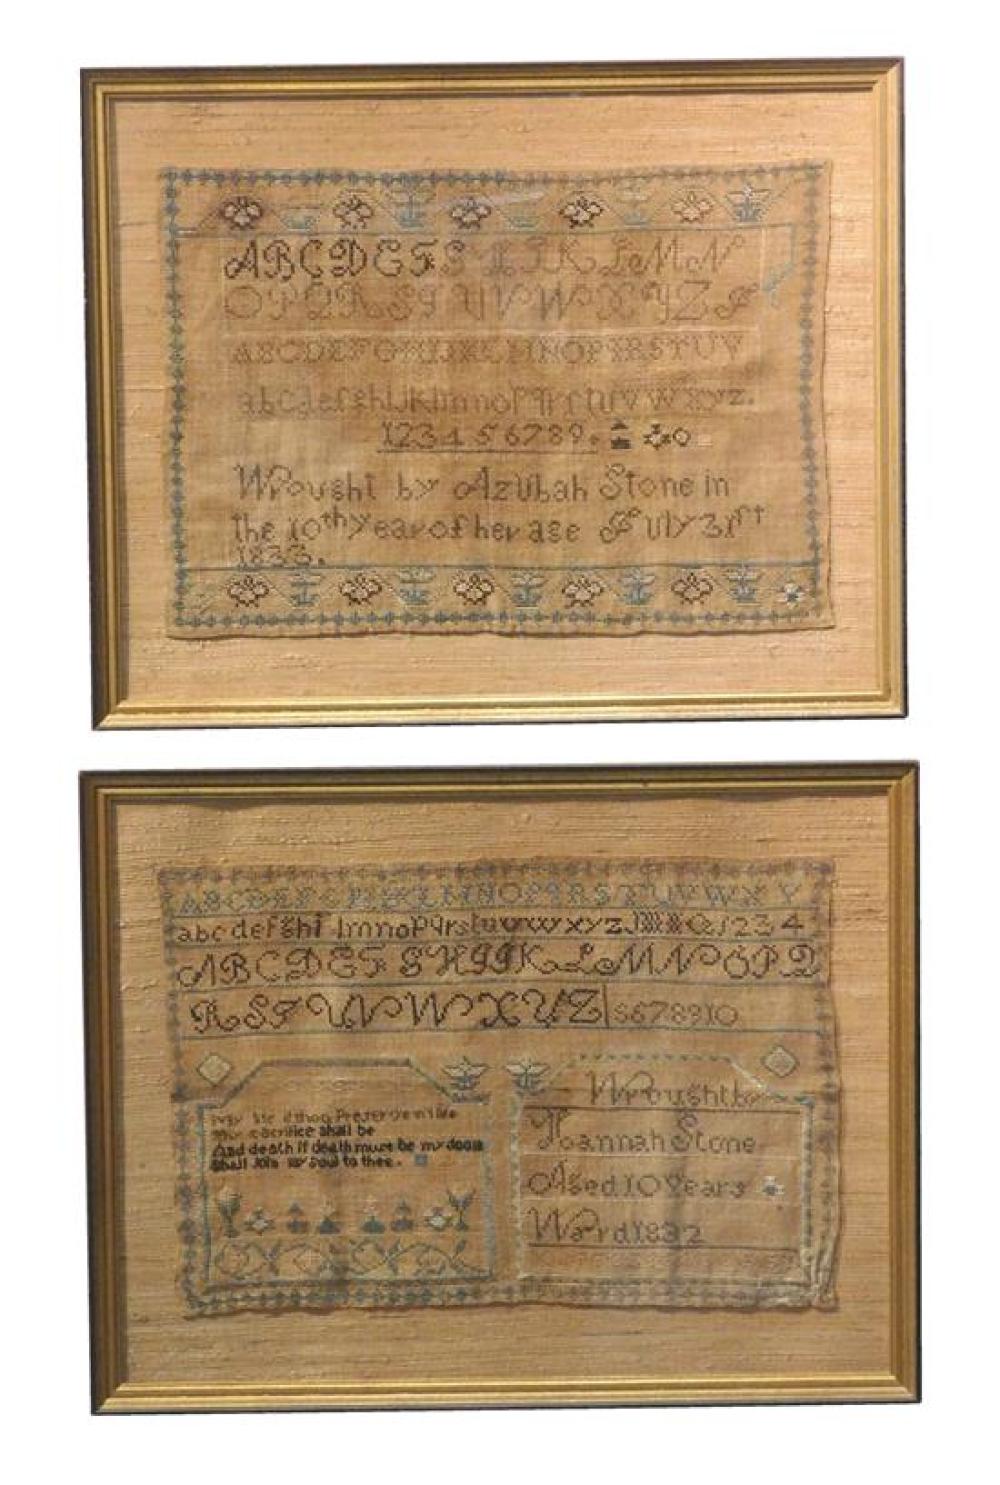 ABCDEFGHIJKLMN
OPQRSTUVWXYZ&
ABCDEFGHIJKLMNOPQRSTUV
abcdefghIJKlmnopqrstuvwxyz.
123456789.
Wrought by Azubah Stone in
the 10th year of her age July 31ft
1833.
ABCDEFGHIJKLMNOPQRSTUVWXY
abcdefghilmnopqrstuvwxyz 1234
ABCDEFGHIJKLMNOPQ
RSTUVWXYZ 5678910
if thou Preserve my life
sacrifice shall be
And death if death must be my doom
Shall join my soul to thee.
Wrought by
Hannah Stone
Aged 10 years
Ward 1832